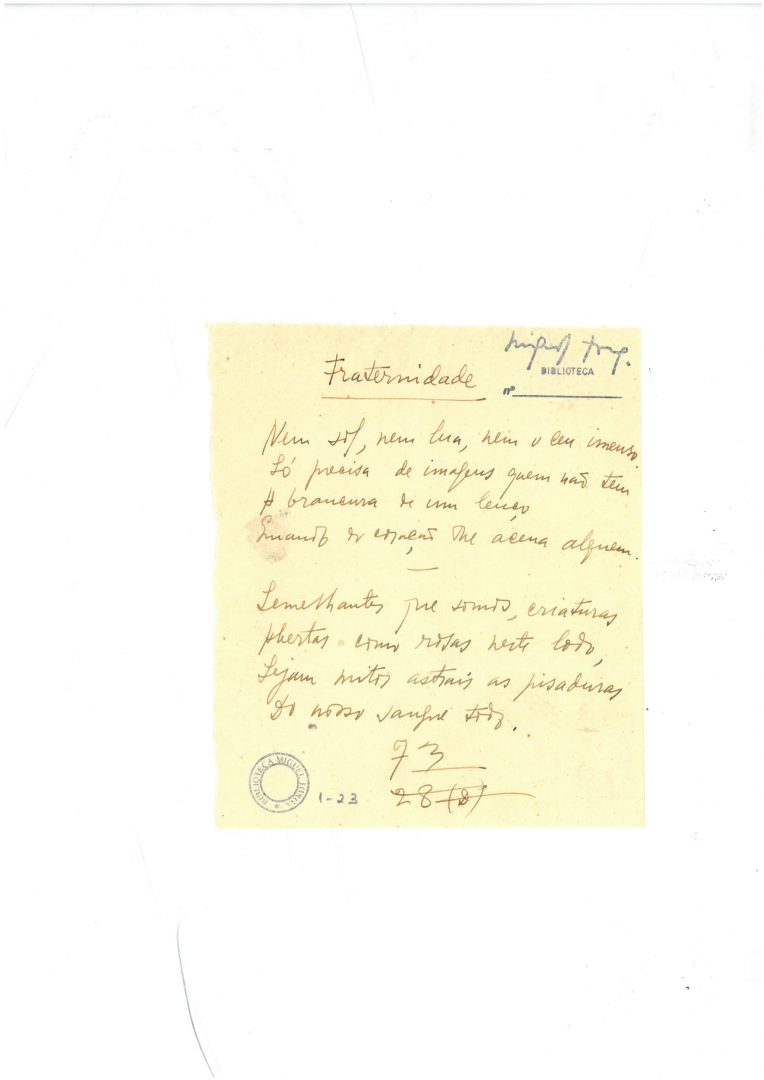 Miguel Torga.
BIBLIOTECA
nº
Fraternidade
Nem sol, nem lua, nem o céu imenso.
Só precisa de imagens quem não tem
A brancura de um lenço
Quando do coração lhe acena alguém.
Semelhantes que somos, criaturas
Abertas como rosas neste lodo,
Sejam mitos astrais as pisaduras
Do nosso sangue todo.
73
28 (8)
BIBLIOTECA MIGUEL TORGA
1-23